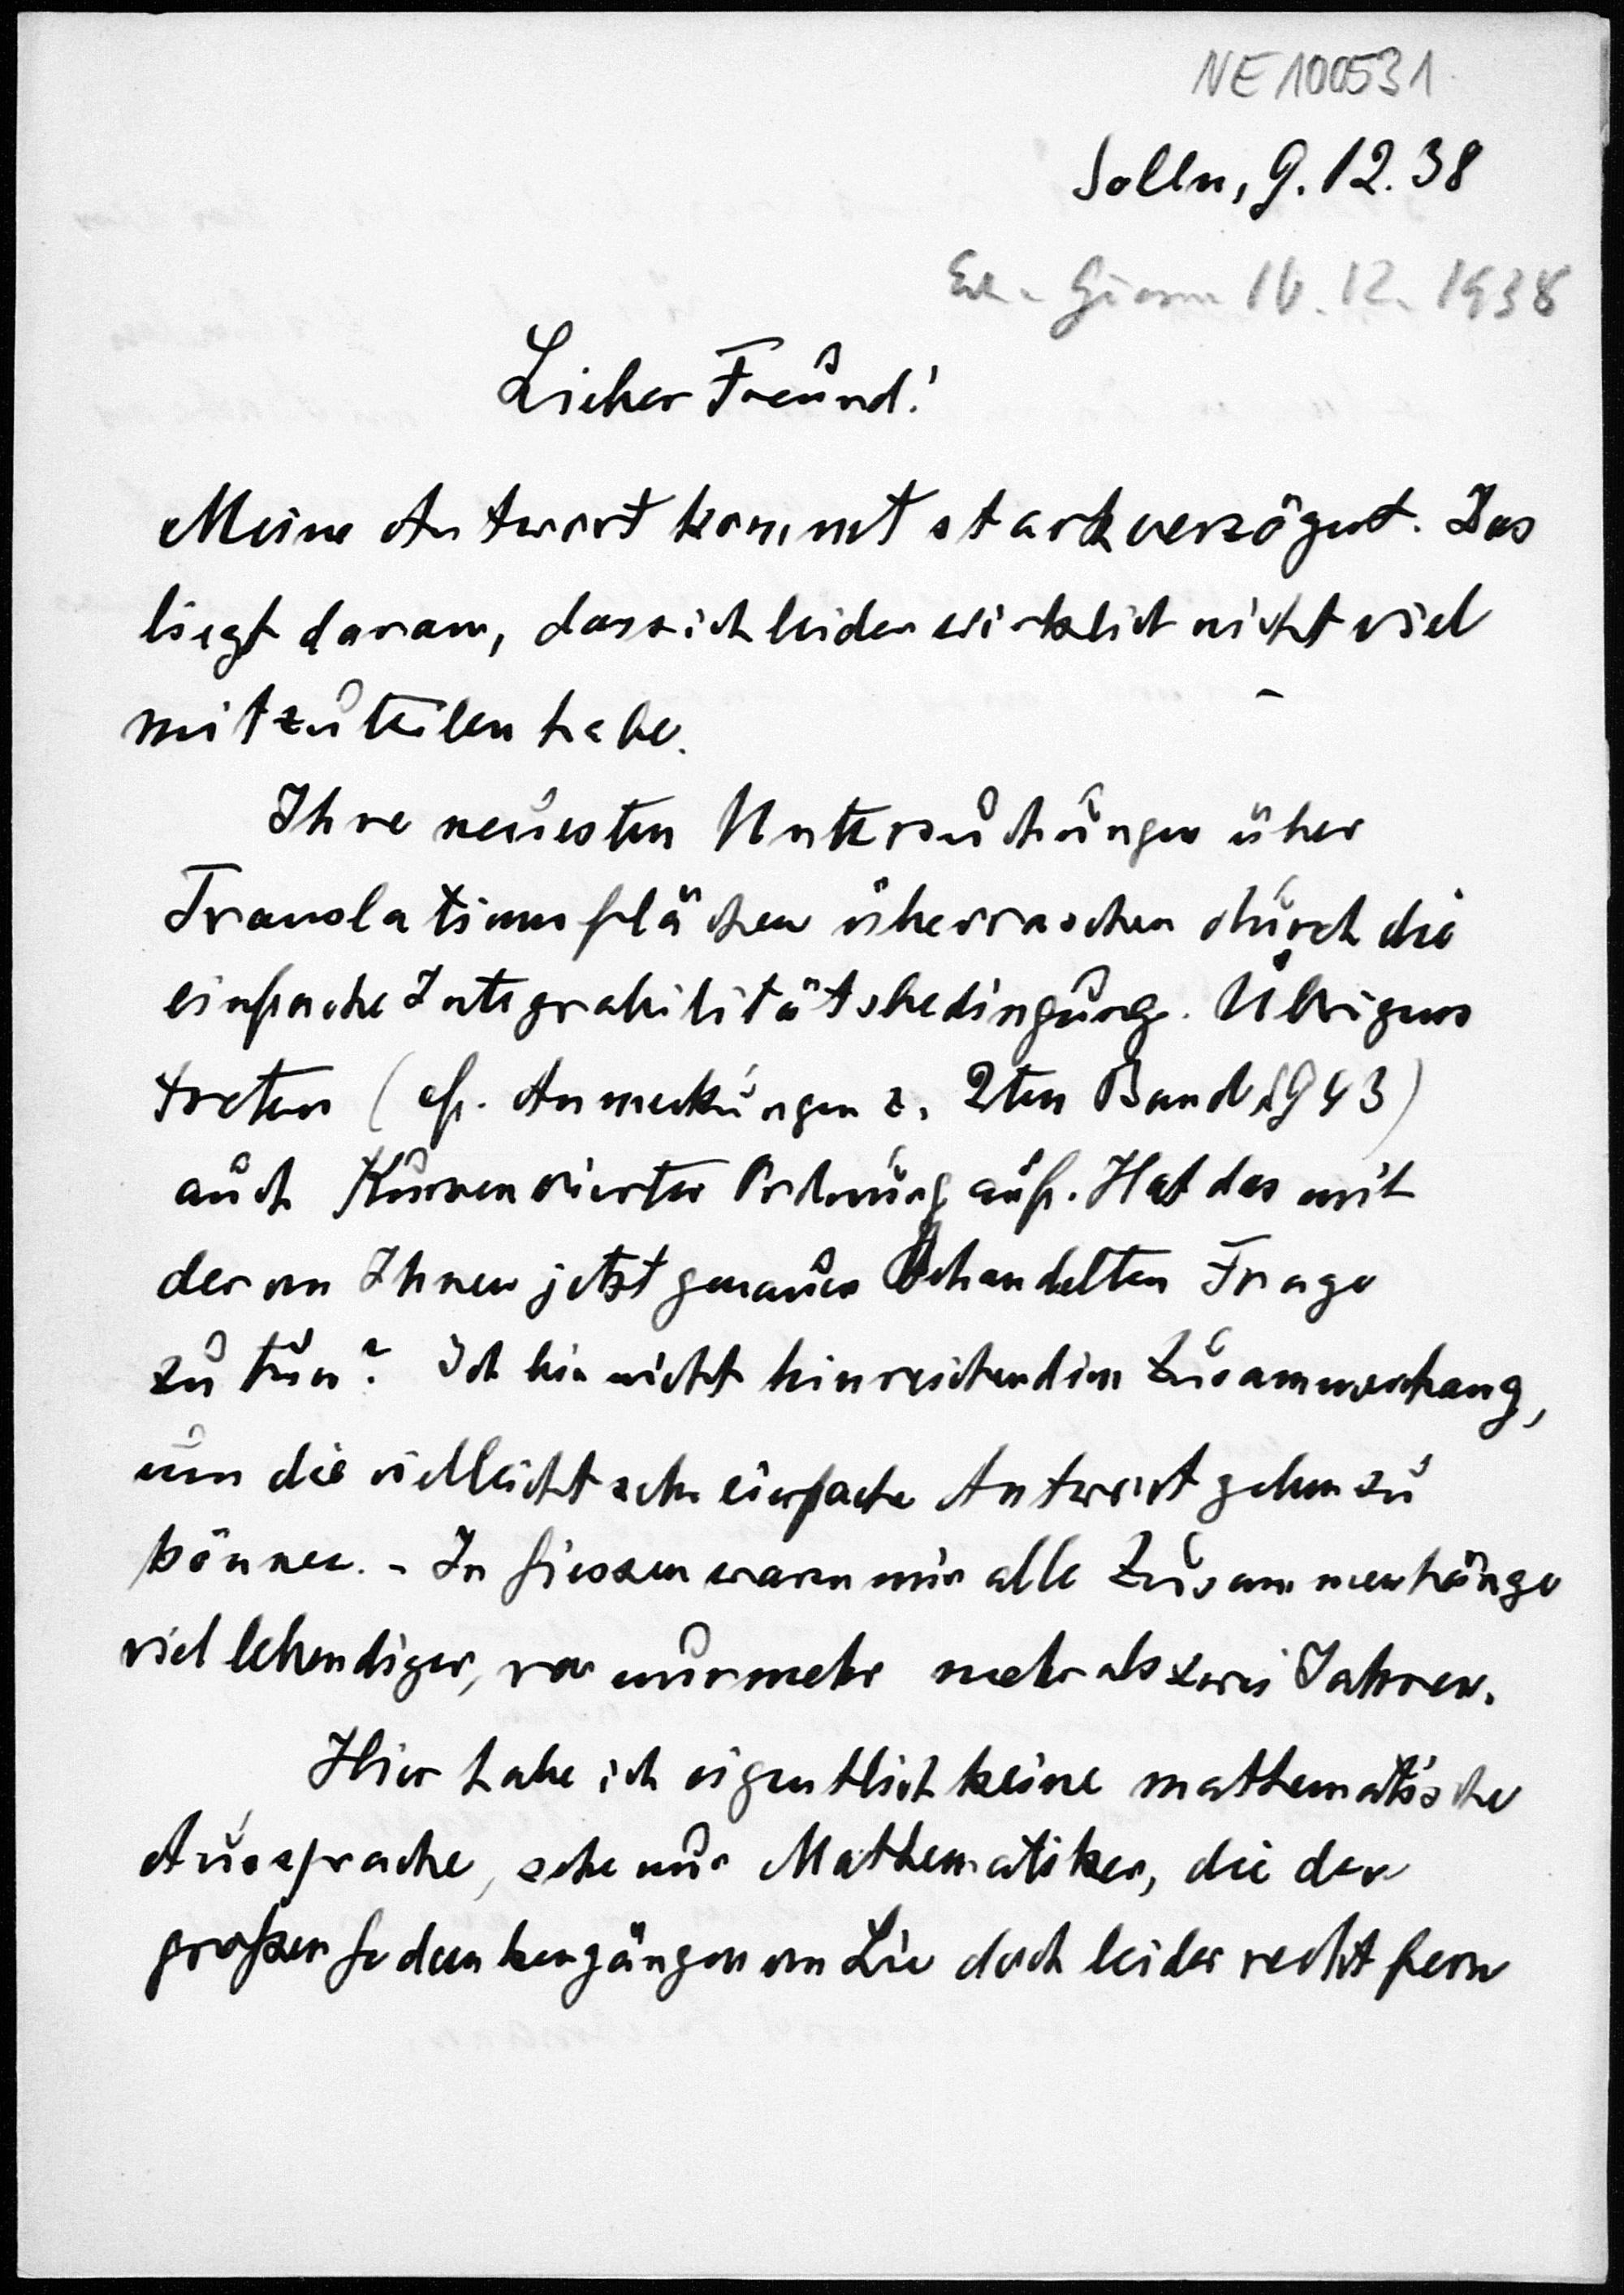 NE 100531
Solln, 9.12.38
Giessen 10.12.1938
Lieber Freund!
Meine Antwort kommt stark verzögert. Das
liegt daran, dass ich leider wirklich nicht viel
mitzuteilen habe.
Ihre neuesten Untersuchungen über
Translationsflächen überraschen durch die
einfache Integrabilitätsbedingung. Übrigens
treten (cf. Anmerkungen z. 2ten Band S. 943)
auch Kurven vierter Ordnung auf. Hat das mit
der von Ihnen jetzt genauer behandelten Frage
zu tun? Ich bin nicht hinreichend im Zusammenhang,
um die vielleicht sehr einfache Antwort geben zu
können. - In Giessen waren mir alle Zusammenhänge
viel lebendiger, vor nunmehr mehr als zwei Jahren.
Hier habe ich eigentlich keine mathematische
Aussprache, sehe nur Mathematiker, die den
großen Gedankengängen von Lie doch leider recht fern